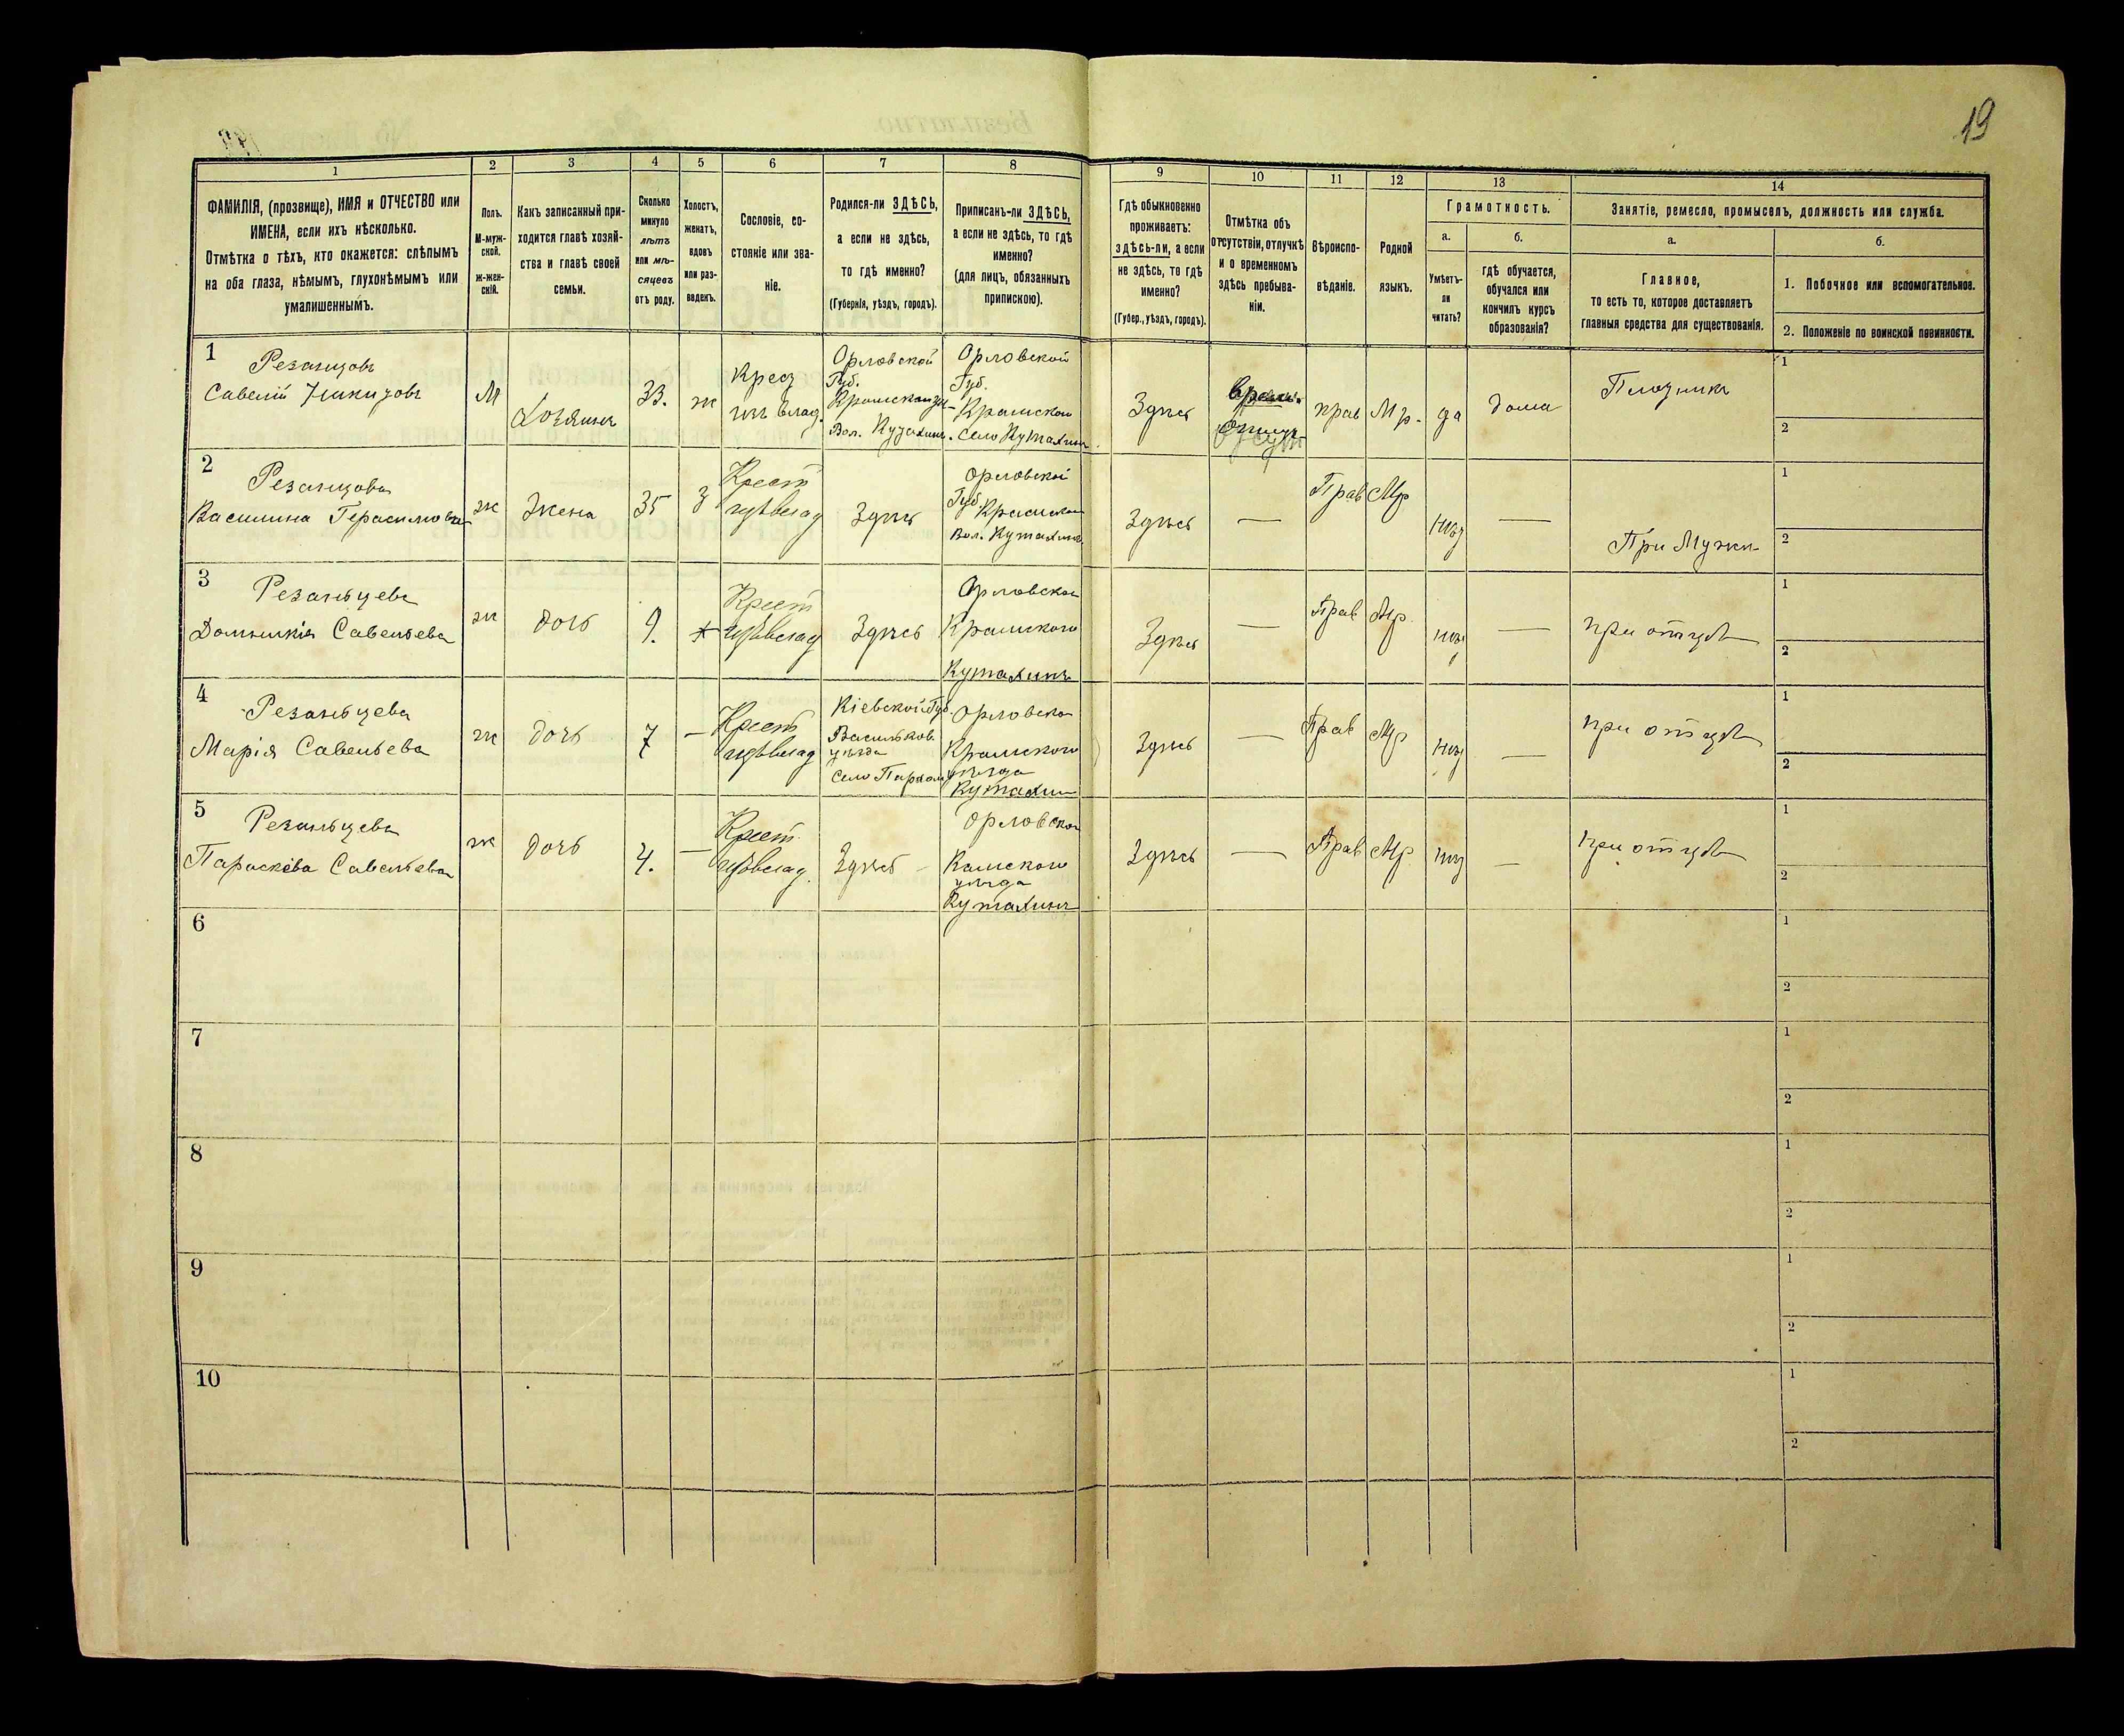 19
1
2
3
4
5
6
7
8
9
10
11
12
13
14
ФАМИЛІЯ, (прозвище), ИМЯ и ОТЧЕСТВО или
ИМЕНА, если ихъ нѣсколько.
Отмѣтка о тѣхъ, кто окажется: слѣпымъ
на оба глаза, нѣмымъ, глухонѣмымъ или
умалишеннымъ.
Полъ.
М-муж-
ской.
ж-жен-
скій.
Какъ записанный при-
ходится главѣ хозяй-
ства и главѣ своей
семьи.
Сколько
минуло
лѣтъ
или мѣ-
сяцевъ
отъ роду.
Холостъ,
женатъ,
вдовъ
или раз-
веденъ.
Сословіе, со-
стояніе или зва-
ніе.
Родился-ли ЗДѢСЬ,
а если не здѣсь,
то гдѣ именно?
(Губернія, уѣздъ, городъ).
Приписанъ-ли ЗДѢСЬ,
а если не здѣсь, то гдѣ
именно?
(для лицъ, обязанныхъ
припискою).
Гдѣ обыкновенно
проживаетъ:
здѣсь-ли, а если
не здѣсь, то гдѣ
именно?
(Губер., уѣздъ, городъ).
Отмѣтка объ
отсутствіи, отлучкѣ
и о временномъ
здѣсь пребыва-
ніи.
Вѣроиспо-
вѣданіе.
Родной
языкъ.
Грамотность.
а.
Умѣетъ-
ли
читать?
б.
гдѣ обучается,
обучался или
кончилъ курсъ
образованія?
Занятіе, ремесло, промыселъ, должность или служба.
а.
Главное,
то есть то, которое доставляетъ
главныя средства для существованія.
б.
1. Побочное или вспомогательное.
2. Положеніе по воинской повинности.
1
Резанцовъ
Савелій Никитовъ
М
Хозяинъ
33.
ж
Крест
Орловской
Губ.
Орловской
Губ.
Кромскаго
Село Кутафинъ
Здѣсь
прав
Мр.
да
дома
Плотникъ
1
2
2
Резанцова
Василина Герасимовна
ж
Жена
35
З
Крест
Здѣсь
Орловской
Губ
Вол. Кутафинъ
Здѣсь
—
Прав
Мр
нѣт
—
При Мужи
1
2
3
Резаньцева
Домникія Савельева
ж
дочь
9.
Крест
Здѣсь
Орловской
Кромского
Кутафинъ
Здѣсь
—
Прав
Мр.
нѣт
—
при отцѣ
1
2
4
Резаньцева
Марія Савельева
ж
дочь
7
—
Крест
Кіевской Губ.
Васильков.
уѣзда
Орловско
Кромского
уѣзда
Кутафин
Здѣсь
—
Прав
Мр
нѣт
—
при отцѣ
1
2
5
Резаньцева
Параскева Савельева
ж
дочь
4.
—
Крест
Здѣсь
Орловской
Камского
уѣзда
Кутафинъ
Здѣсь
—
Прав
Мр.
нѣт
—
при отцѣ
1
2
6
1
2
7
1
2
8
1
2
9
1
2
10
1
2